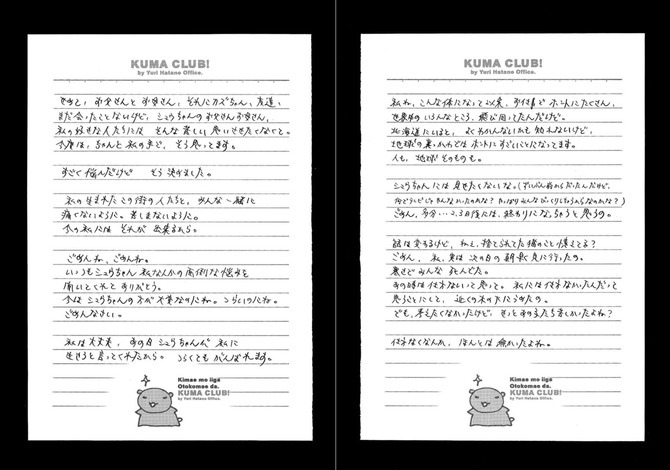 KUMA CLUB!
by Yuri Hatano Office.
せめて、お父さんとお母さん、それにカズちゃん、友達、
まだ会ったことないけど、シュウちゃんのお父さんお母さん、
私の好きな人たちには そんな苦しい思いさせたくなくて。
今度は、ちゃんと私の手で、そう思ってます。
すごく悩んだけど そう決めました。
私の生まれたこの街の人たちと、みんな一緒に
痛くないように。苦しまないように。
今の私には それが 出来るから。
ごめんね、ごめんね。
いつもシュウちゃん 私なんかの面倒な悩みを
聞いてくれて ありがとう。
今はシュウちゃんの方が大変なのにね。つらいのにね。
ごめんなさい。
私は大丈夫、あの日シュウちゃんが 私に
生きろと言ってくれたから。 つらくてもがんばれます。
Kimae mo iiga
Otokomae da.
KUMA CLUB!
by Yuri Hatano Office.
KUMA CLUB!
by Yuri Hatano Office.
私ね、こんな体になって以来、お仕事で ホントにたくさん、
世界中の いろんなところ、飛び回ってたんだけど。
北海道にいると、よくわかんないかも知れないけど、
地球の裏っかわでは ホントにすごいことになってます。
人も、地球 そのものも。
シュウちゃんには 見せたくないな。(ずいぶん前からだったんだけど、
何でテレビじゃ やんないのかな? やっぱりみんな びっくりしちゃうからなのかな?)
ごめん、多分…2、3日後には、終わりになっちゃうと思うの。
話は変るけど、私ね、捨てられてた猫のこと憶えてる?
ごめん、私、実は 次の日の朝 見に行ったの。
寒さで みんな 死んでた。
あの時は仕方ないって思って。 私には仕方なかったんだって
思うことにして、近くの木の下にうめたの。
でも、考えたくなかったけど、きっとあの子たち苦しかったよね?
仕方なくなんか、ほんとは 無かったよね。
Kimae mo iiga
Otokomae da.
KUMA CLUB!
by Yuri Hatano Office.